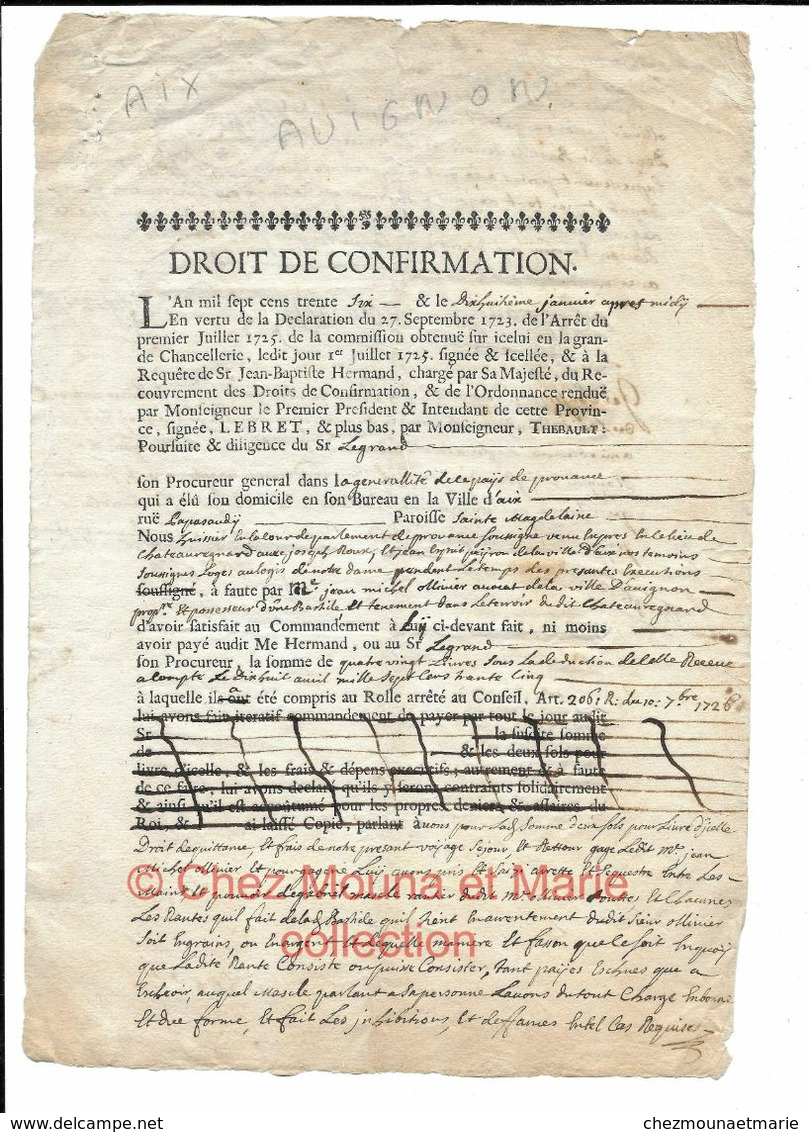 AIX
AVIGNON
DROIT DE CONFIRMATION.
L'An mil sept cens trente Six & le Dixhuitième janvier apres midy
En vertu de la Declaration du 27. Septembre 1723. de l'Arrêt du
premier Juillet 1725. de la commission obtenuë sur icelui en la gran-
de Chancellerie, ledit jour 1er Juillet 1725. signée & scellée, & à la
Requête de Sr Jean-Baptiste Hermand, chargé par Sa Majesté, du Re-
couvrement des Droits de Confirmation, & de l'Ordonnance renduë
par Monseigneur le Premier President & Intendant de cette Provin-
ce, signée, LEBRET, & plus bas, par Monseigneur, THEBAULT:
Poursuite & diligence du Sr Legrand
son Procureur general dans la generallité de le païs de provance
qui a élû son domicile en son Bureau en la Ville d'aix
ruë Papasaudy Paroisse Sainte Magdelaine
Nous huissier en la cour de parlement de provance soussigne venu expres en le lieu de
Chateauregnard avec joseph Roux, et jean esprit peijron de la ville d'aix nos temoins
soussignes Loges au logis de notre dame pendent le temps des presantes executions
soussigné, à faute par Me. jean michel ollivier avocat de la ville D'avignon
propre. Et possesseur d'une Bastide et tenement dans le terroir du dit Chateauregnard
d'avoir satisfait au Commandement à luij ci-devant fait, ni moins
avoir payé audit Me Hermand, ou au Sr Legrand
son Procureur, la somme de quatre vingt Livres sous la deduction de celle Receue
a compte le dixhuit avril mille sept cens trante cinq
à laquelle il a été compris au Rolle arrêté au Conseil, Art. 206: R: du 10: 7bre 1726
lui avons fait iteratif commandement de payer pur tout le jour audit
Sr la susdite somme
de & les deux sols pour
livre d'icelle, & les frais & dépens executifs; autrement & à faute
de ce faire, lui avons declaré qu'ils y seront contraints solidairement
& ainsi qu'il est accoûtumé pour les propres deniers & affaires du
Roi, & ai laissé Copie, parlant avons pour lad. somme deux sols pour Livre d'jcelle
Droit de quittance, et frais de notre presant voijage sejour, et Rettour gagé Ledit Me. jean
Michel ollivier, et pour gagerie Luij avons pris et saisi arretté et sequestré entre Les
mains et pouvoir de gabriel mascle rantier dudit Me. ollivier toutes et Chacunes
Les Rantes qu'il fait de lad. Bastide qu'il tient en arrentement dudit sieur ollivier
soit En grains, ou En argent et de quelle maniere et fasson que ce soit En quoij
que Ladite Rante Consiste ou puisse Consister, tant païjes Echues que a
Echeoir, auquel Mascle parlant a sa personne L'avons du tout Chargé En bonne
Et due forme, Et fait Les jnhibitions, Et deffances En tel Cas Requises
© Chez Mouna et Marie
collection
chezmounaetmarie